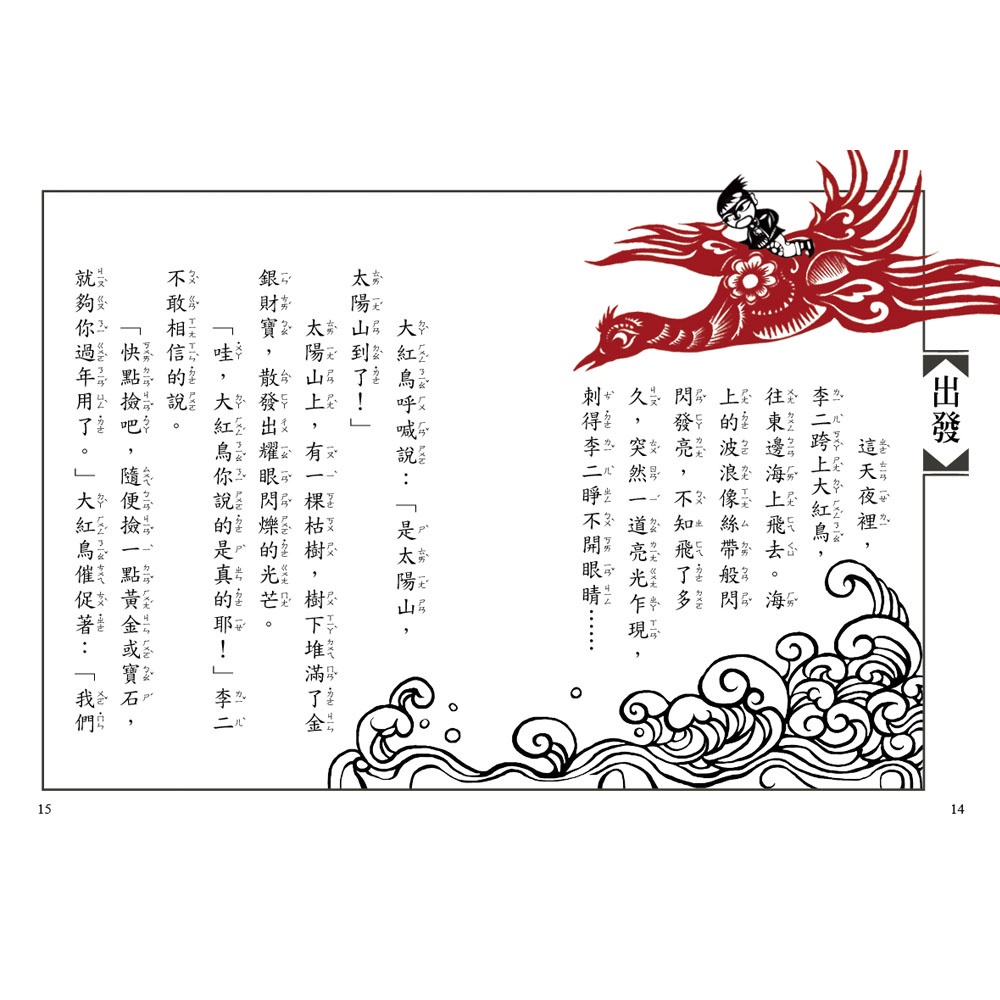 出發
這天夜裡，
李二跨上大紅鳥，
往東邊海上飛去。海
上的波浪像絲帶般閃
閃發亮，不知飛了多
久，突然一道亮光乍現，
刺得李二睜不開眼睛……
大紅鳥呼喊說：「是太陽山，
太陽山到了！」
太陽山上，有一棵枯樹，樹下堆滿了金
銀財寶，散發出耀眼閃爍的光芒。
「哇，大紅鳥你說的是真的耶！」李二
不敢相信的說。
「快點撿吧，隨便撿一點黃金或寶石，
就夠你過年用了。」大紅鳥催促著：「我們
14
15